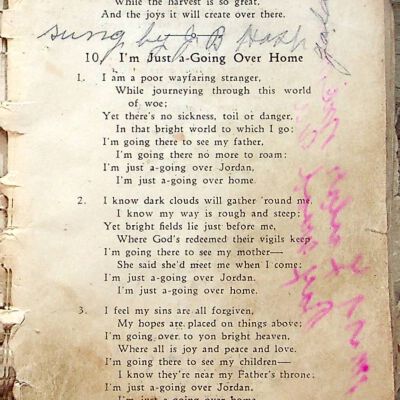 While the harvest is so great,
And the joys it will create over there.
sung by J B
10. I'm Just a-Going Over Home
1. I am a poor wayfaring stranger,
While journeying through this world
of woe;
Yet there's no sickness, toil or danger,
In that bright world to which I go:
I'm going there to see my father,
I'm going there no more to roam;
I'm just a-going over Jordan,
I'm just a-going over home.
2. I know dark clouds will gather 'round me,
I know my way is rough and steep;
Yet bright fields lie just before me,
Where God's redeemed their vigils keep
I'm going there to see my mother—
She said she'd meet me when I come;
I'm just a-going over Jordan,
I'm just a-going over home.
3. I feel my sins are all forgiven,
My hopes are placed on things above;
I'm going over to yon bright heaven,
Where all is joy and peace and love.
I'm going there to see my children—
I know they're near my Father's throne;
I'm just a-going over Jordan,
I'm just a-going over home.